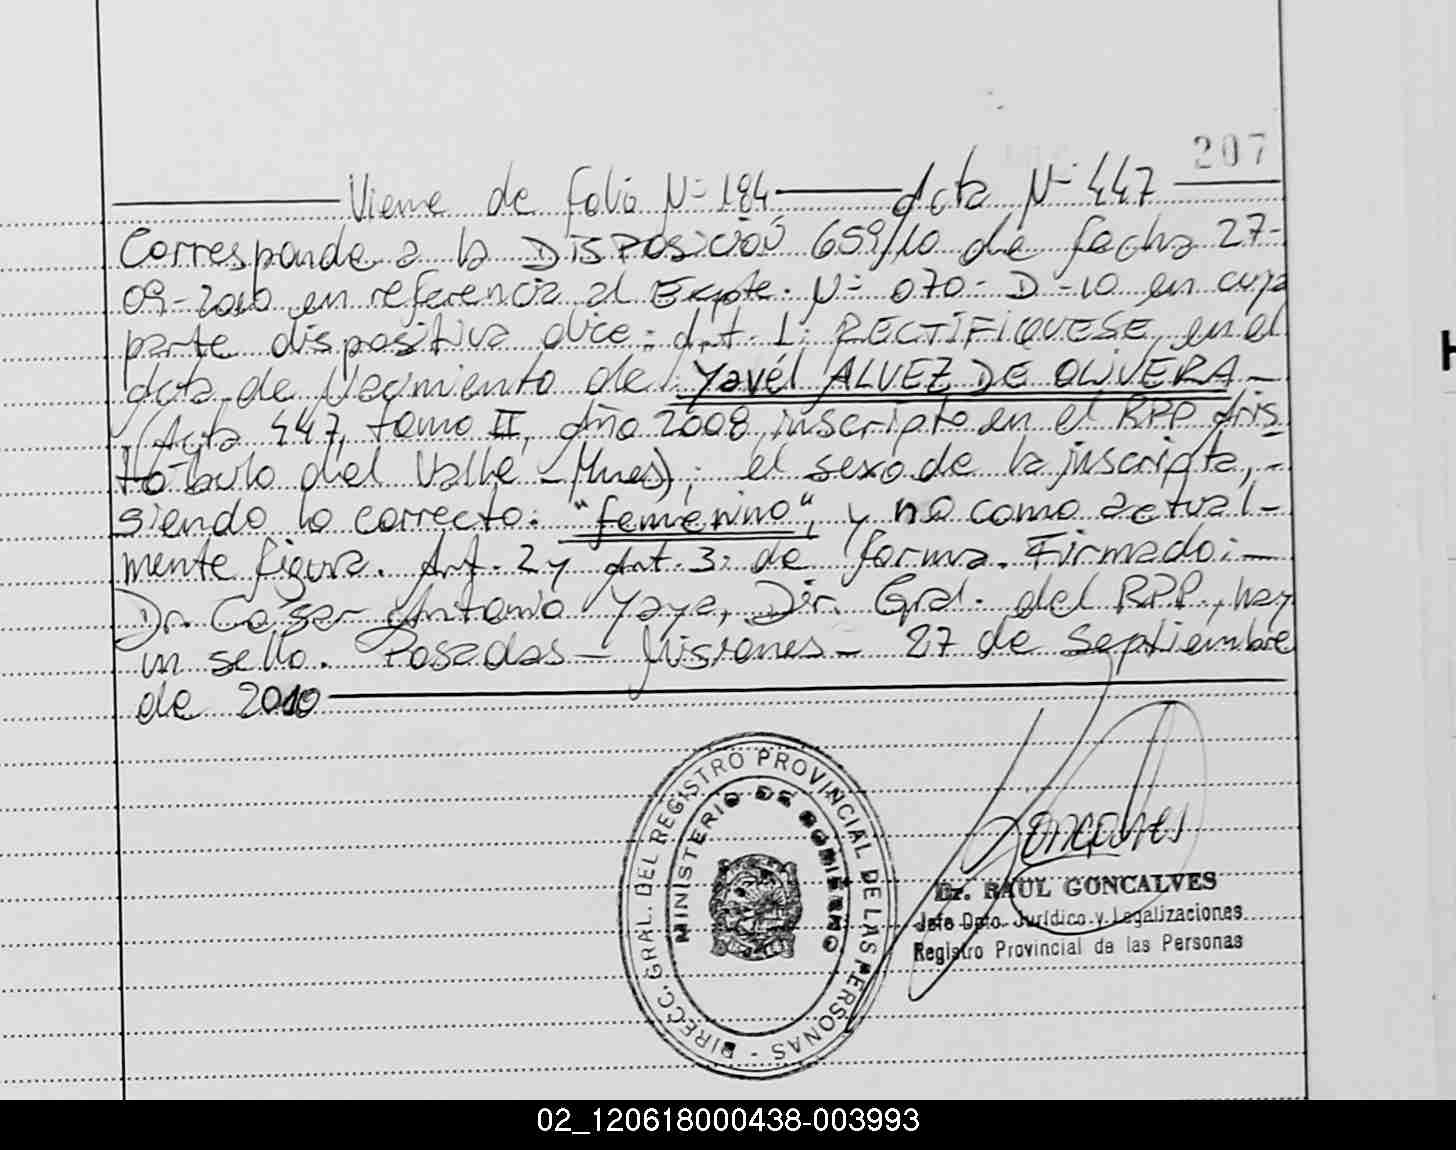 207
Viene de folio Nº 184 Acta Nº 447
Corresponde a la DISPOSICIÓN 659/10 de fecha 27-
09-2010 en referencia al Expte. Nº 070-D-10 en cuya
parte dispositiva dice: Art. 1: RECTIFIQUESE, en el
Acta de Nacimiento de: Yavél ALVEZ DE OLIVERA-
(Acta 447, tomo II, Año 2008, inscripto en el RPP Aris-
tóbulo del Valle - Mnes); el sexo de la inscripta,-
siendo lo correcto: "femenino", y no como actual-
mente figura. Art. 2 y Art. 3: de forma. Firmado:-
Dr. César Antonio Yaya, Dir. Gral. del RPP., hay
un sello. Posadas - Misiones - 27 de Septiembre
de 2010
DIRECC. GRAL. DEL REGISTRO PROVINCIAL DE LAS PERSONAS -
MINISTERIO DE GOBIERNO
Goncalves
Dr. RAUL GONCALVES
Jefe Dpto. Jurídico y Legalizaciones
Registro Provincial de las Personas
H
02_120618000438-003993